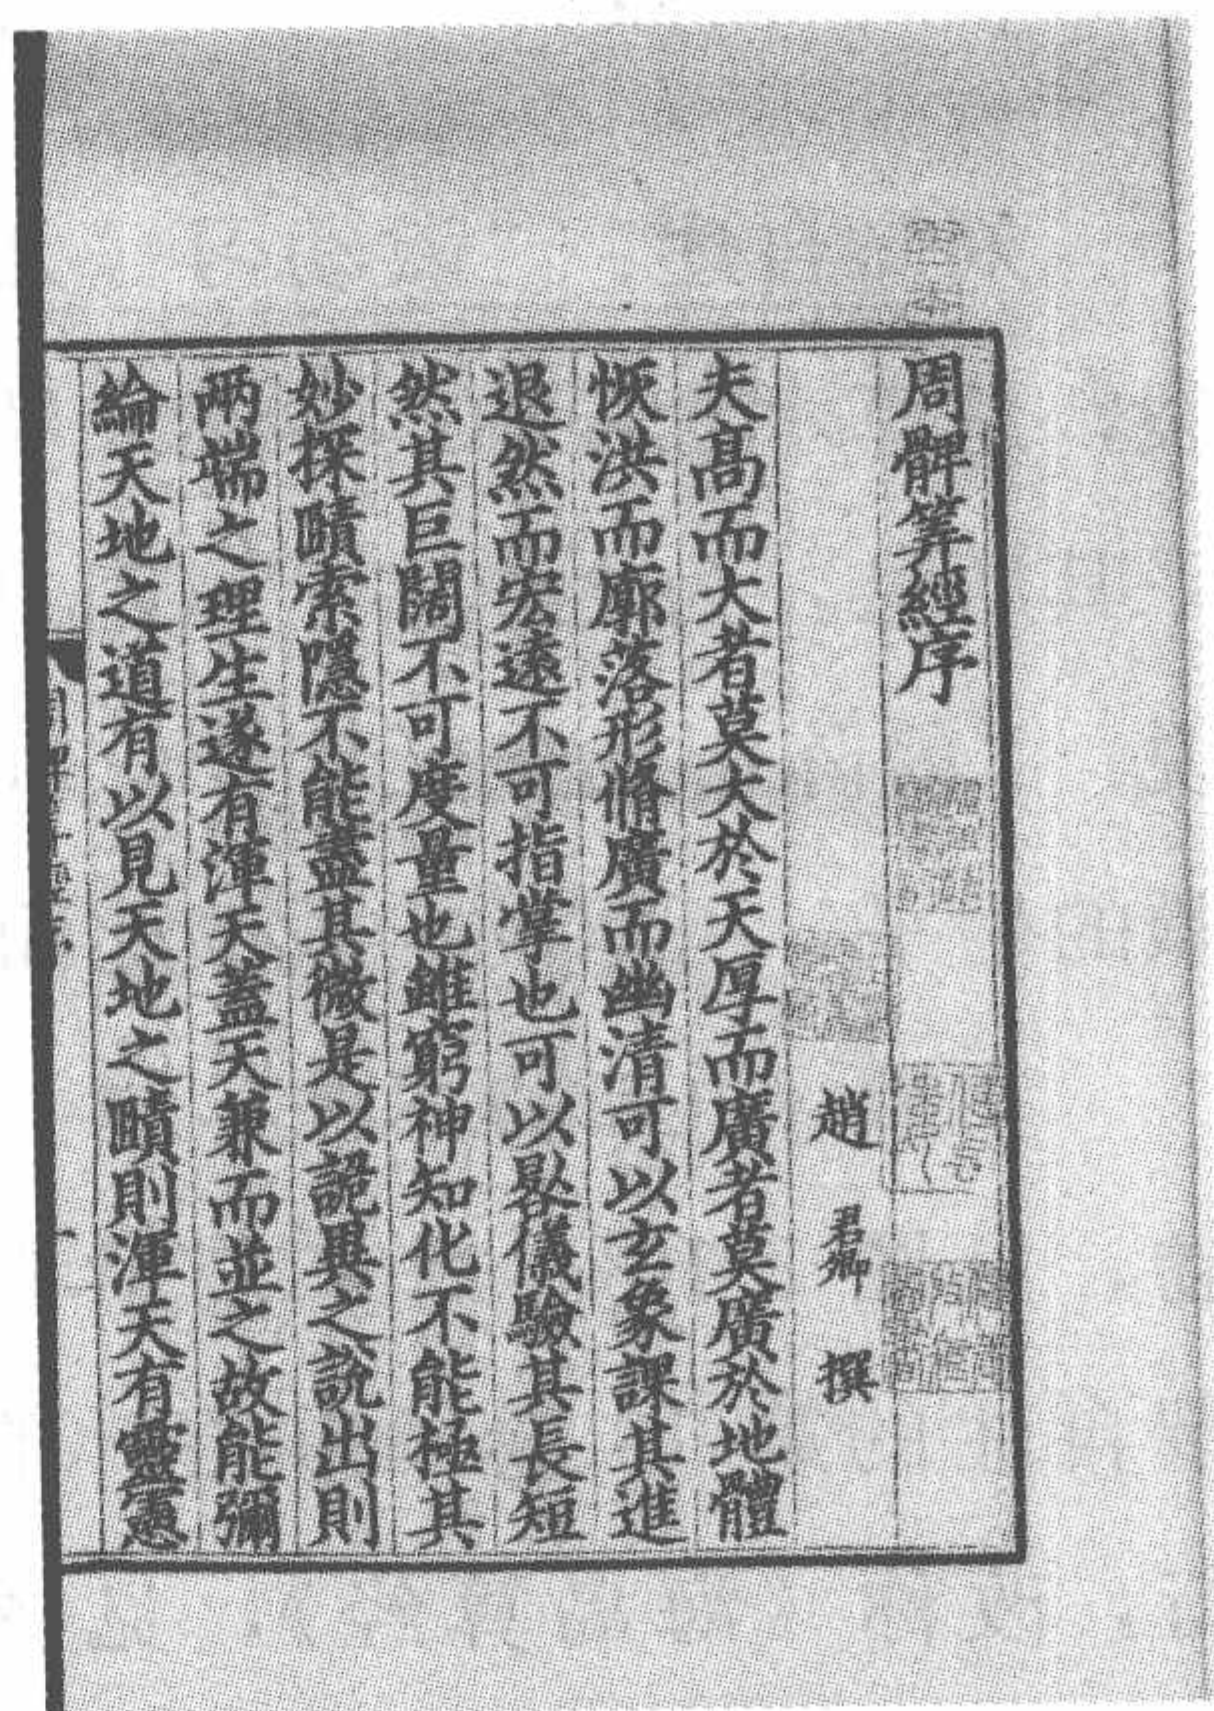 周髀筭經序
趙 君卿 撰
夫髙而大者莫大於天厚而廣者莫廣於地體
恢洪而廓落形脩廣而幽清可以玄象課其進
退然而宏遠不可指掌也可以晷儀驗其長短
然其巨闊不可度量也雖窮神知化不能極其
妙探賾索隱不能盡其微是以詭異之說出則
兩端之理生遂有渾天蓋天兼而並之故能彌
綸天地之道有以見天地之賾則渾天有靈憲